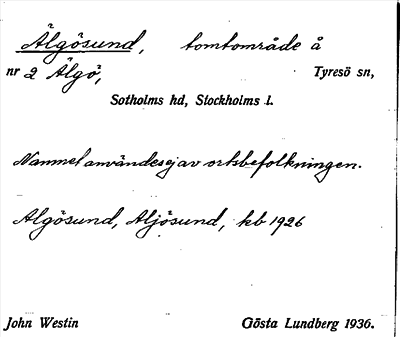 Älgösund, tomtområde å
nr 2 Älgö, Tyresö sn,
Sotholms hd, Stockholms l.
Namnet användes ej av ortsbefolkningen.
Älgösund, Aljösund, kb 1926
John Westin Gösta Lundberg 1936.